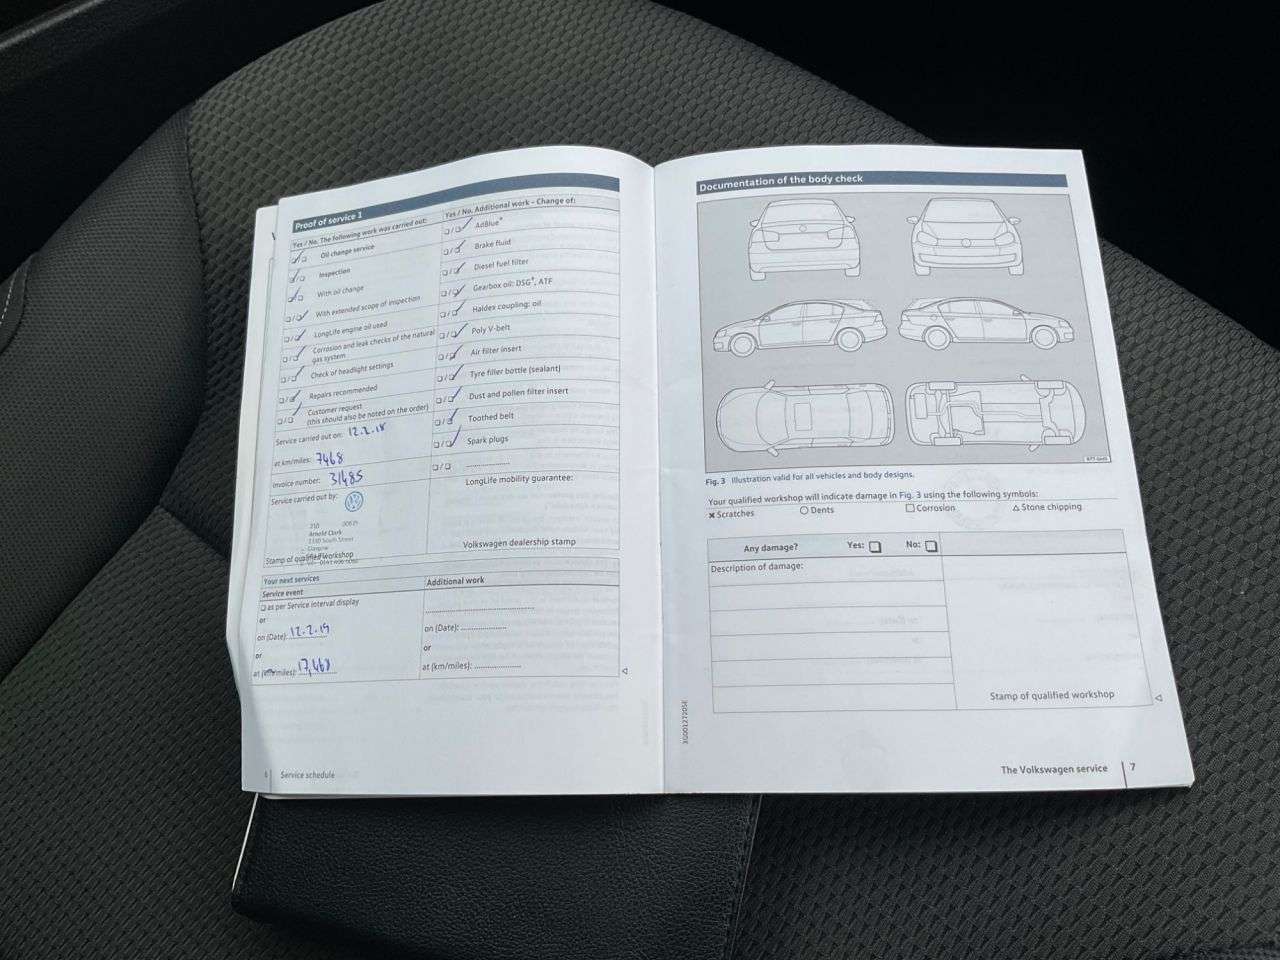 Proof of service 1
Yes / No. The following work was carried out:
Oil change service
Inspection
With oil change
With extended scope of inspection
LongLife engine oil used
Corrosion and leak checks of the natural
gas system
Check of headlight settings
Repairs recommended
Customer request
(this should also be noted on the order)
Service carried out on: 12.2.18
at km/miles: 7468
Invoice number: 31485
Service carried out by:
Arnold Clark
South Street
Glasgow
Stamp of qualified workshop
Yes / No. Additional work – Change of:
AdBlue®
Brake fluid
Diesel fuel filter
Gearbox oil: DSG®, ATF
Haldex coupling: oil
Poly V-belt
Air filter insert
Tyre filler bottle (sealant)
Dust and pollen filter insert
Toothed belt
Spark plugs
LongLife mobility guarantee:
Volkswagen dealership stamp
Your next services
Service event
as per Service interval display
or
on (Date): 12.2.19
or
at (km/miles): 17,468
Additional work
on (Date):
or
at (km/miles):
6 Service schedule
Documentation of the body check
Fig. 3 Illustration valid for all vehicles and body designs.
Your qualified workshop will indicate damage in Fig. 3 using the following symbols:
Scratches Dents Corrosion Stone chipping
Any damage? Yes: No:
Description of damage:
Stamp of qualified workshop
The Volkswagen service 7